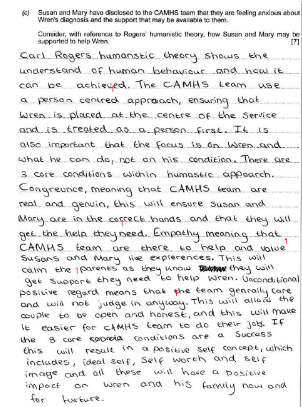 (c) Susan and Mary have disclosed to the CAMHS team that they are feeling anxious about
Wren's diagnosis and the support that may be available to them.
Consider, with reference to Rogers' humanistic theory, how Susan and Mary may be
supported to help Wren. [7]
Carl Rogers humanstic theory shows the
understand of human behaviour and how it
can be achieved. The CAMHS team use
a person centred approach, ensuring that
Wren is placed at the centre of the service
and is treated as a person first. It is
also important that the focus is on Wren and
what he can do, not on his condition. There are
3 core conditions within humastic appoarch.
Congruence, meaning that CAMHS team are
real and genuin, this will ensure Susan and
Mary are in the correct hands and that they will
get the help they need. Empathy meaning that
CAMHS team are there to help and value
Susans and Mary live experiences. This will
calm the parents as they know they will
get support they need to help Wren. Unconditional
positive regard means that the team genrally care
and will not judge in anyway. This will allow the
couple to be open and honest, and this will make
it easier for CAMHS team to do their job. If
the 3 core conditions are a sucass
this will result in a positive self concept, which
includes, ideal self, Self worth and self
image and all these will have a positive
impact on Wren and his family now and
for furture.